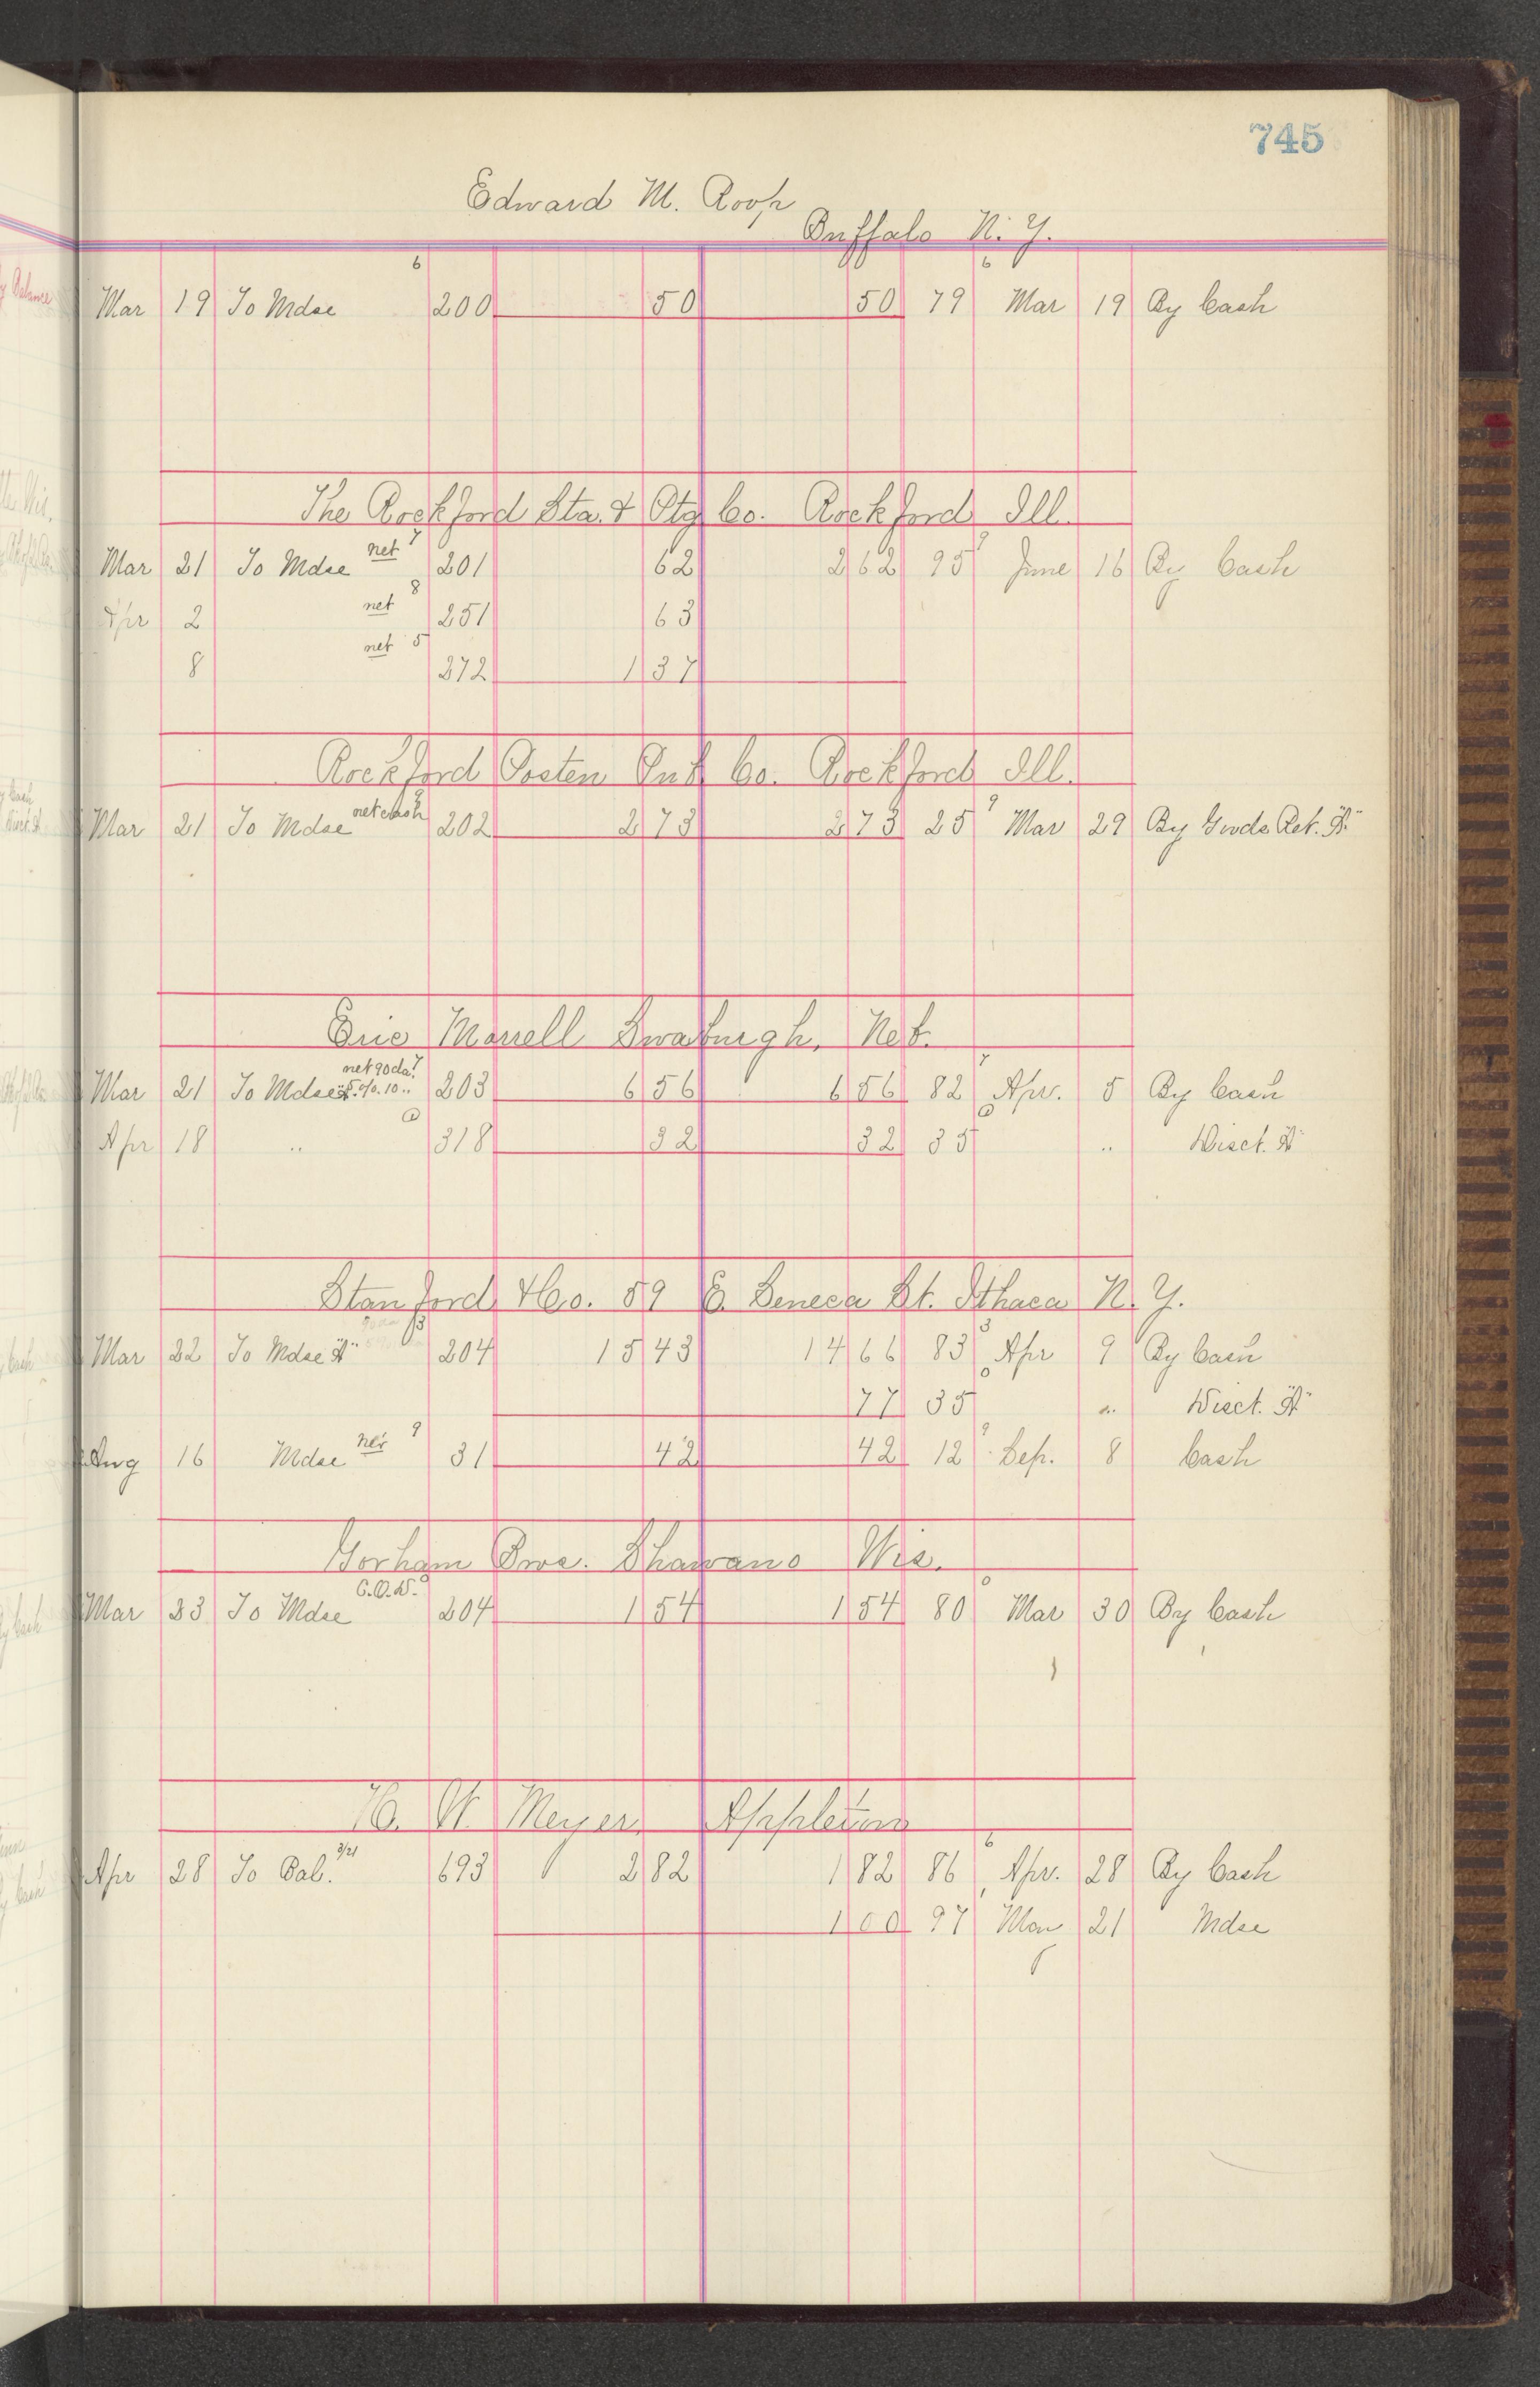 745
Edward M. Roop
Buffalo N. Y.
6 6
Mar 19 To Mdse 200 50 50 79 Mar 19 By Cash
The Rockford Sta. & Ptg Co. Rockford Ill.
Mar 21 To Mdse net 7 201 62 262 95 9 June 16 By Cash
Apr 2 net 8 251 63
8 net 5 272 137
Rockford Posten Pub Co. Rockford Ill.
Mar 21 To Mdse net cash 202 273 273 25 9 Mar 29 By Goods Ret. "A"
Eric Morell Swaburgh, Neb.
net 90 da. 7
Mar 21 To Mdse "A" 5 % 10 .. 203 656 656 82 Apr. 5 By Cash
Apr 18 .. 318 32 32 35 .. Disct. "A"
Stanford & Co. 59 E. Seneca St. Ithaca N. Y.
Mar 22 To Mdse "A" 204 1543 1466 83 Apr 9 By Cash
77 35 .. Disct. "A"
Aug 16 Mdse net 9 31 42 42 12 Sep. 8 Cash
Gorham Bros. Shawano Wis.
C.O.D.
Mar 23 To Mdse 204 154 154 80 Mar 30 By Cash
H. W. Meyer Appleton
Apr 28 To Bal. 3/21 693 282 182 86 6 Apr. 28 By Cash
100 97 Mar 21 Mdse